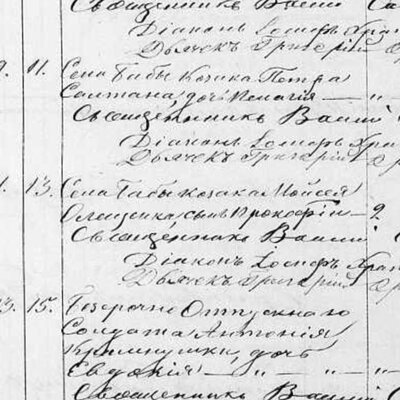 Священникъ Васил
Діаконъ Іосифъ Хра
Дьячекъ Григорій
9. 11. Села Бабы козака Петра
Салтана дочь Пелагія — „
Священникъ Васил
Діаконъ Іосифъ Хра
Дьячекъ Григорій
1. 13. Села Бабы Козака Мойсея
сынъ Прокофій — 2.
Священникъ Васил
Діаконъ Іосифъ Хра
Дьячекъ Григорій
13. 15. Безсрочно Отпускнаго
Солдата Антонія
дочь
Евдокія — „ — „ — „
Священникъ Васил